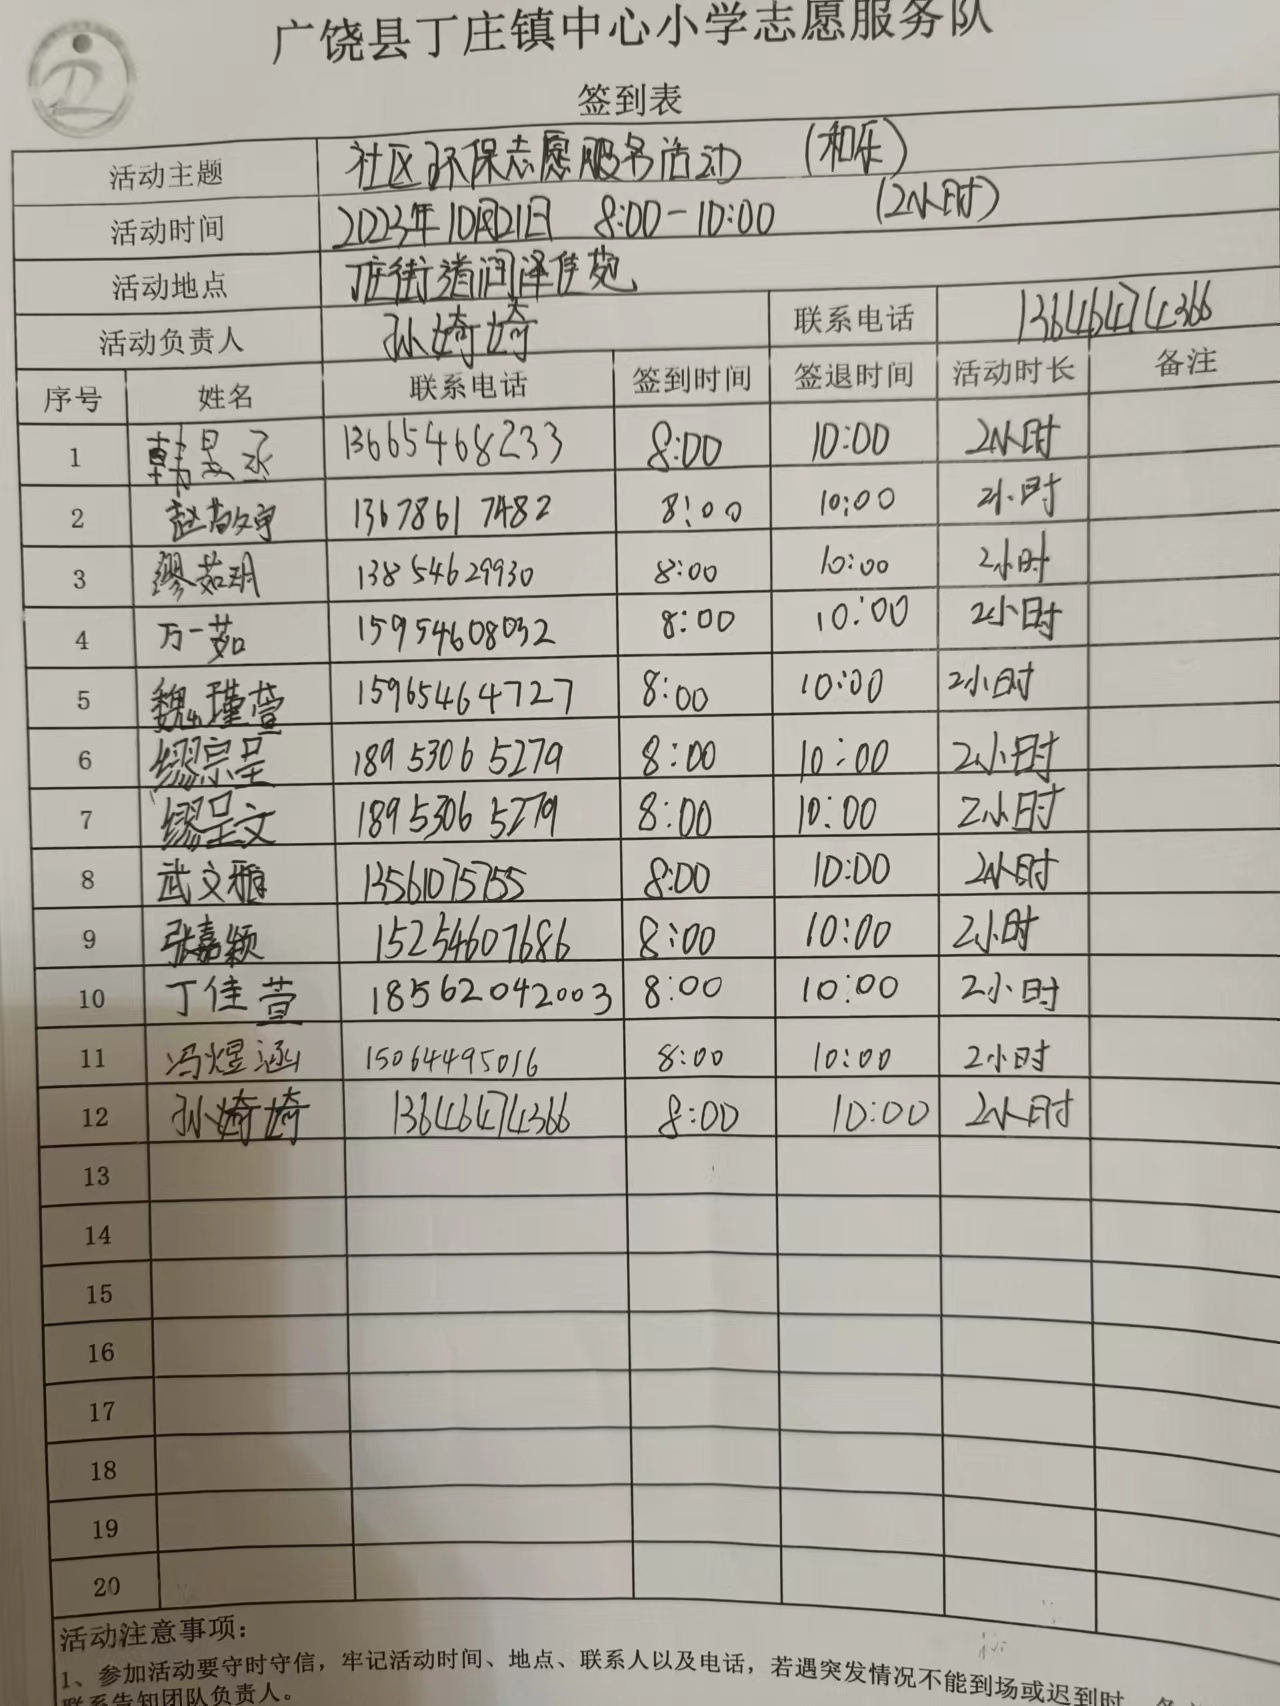 广饶县丁庄镇中心小学志愿服务队
签到表
活动主题 社区环保志愿服务活动 (和乐)
活动时间 2023年10月21日 8:00-10:00 (2小时)
活动地点 丁庄街道润泽佳苑
活动负责人 孙婍婍 联系电话 13646474366
序号 姓名 联系电话 签到时间 签退时间 活动时长 备注
1 韩昱丞 13665468233 8:00 10:00 2小时
2 赵 13678617482 8:00 10:00 2小时
3 缪茹玥 13854629930 8:00 10:00 2小时
4 万一茹 15954608032 8:00 10:00 2小时
5 魏瑾萱 15965464727 8:00 10:00 2小时
6 缪宗呈 18953065279 8:00 10:00 2小时
7 缪呈文 18953065279 8:00 10:00 2小时
8 武文雅 13561075755 8:00 10:00 2小时
9 张嘉颖 15254607686 8:00 10:00 2小时
10 丁佳萱 18562042003 8:00 10:00 2小时
11 冯煜涵 15064495016 8:00 10:00 2小时
12 孙婍婍 13646474366 8:00 10:00 2小时
13
14
15
16
17
18
19
20
活动注意事项：
1、参加活动要守时守信，牢记活动时间、地点、联系人以及电话，若遇突发情况不能到场或迟到时，
联系告知团队负责人。